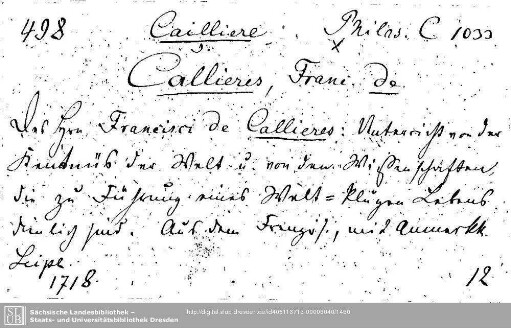 498 Caillière Philos. C 1033
s.
Callieres, Franç. de
Des Hrn. Francisci de Callieres: Unterricht von der
Kentnüs der Welt u. von den Wissenschafften,
die zu Führung eines Welt=klugen Lebens
dienlich sind. Aus dem Französ., mit Anmerkk.
Leipz.
1718. 12
Sächsische Landesbibliothek –
Staats- und Universitätsbibliothek Dresden